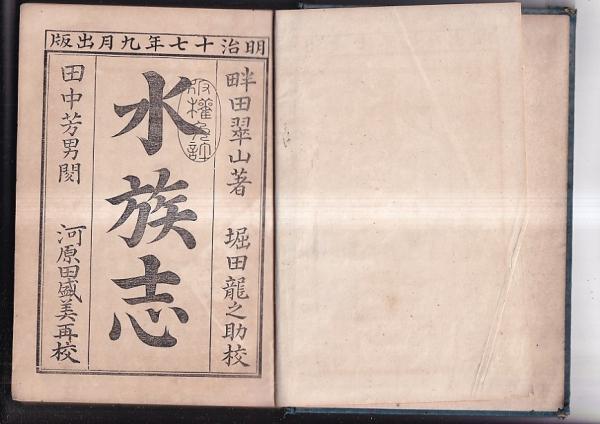 明治十七年九月出版
畔田翠山著 堀田龍之助校
水族志
版權免許
田中芳男閲 河原田盛美再校